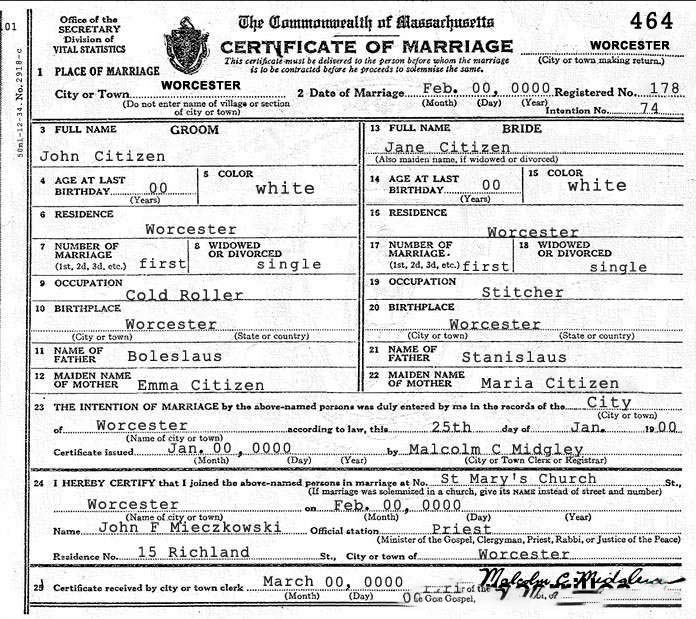 101
50m1-12-34. No. 2918-c
Office of the
SECRETARY
Division of
VITAL STATISTICS
The Commonwealth of Massachusetts
464
CERTIFICATE OF MARRIAGE
This certificate must be delivered to the person before whom the marriage
is to be contracted before he proceeds to solemnize the same.
WORCESTER
(City or town making return.)
1 PLACE OF MARRIAGE
City or Town WORCESTER
(Do not enter name of village or section
of city or town)
2 Date of Marriage Feb. 00, 0000 Registered No. 178
(Month) (Day) (Year)
Intention No. 74
3 FULL NAME GROOM
John Citizen
4 AGE AT LAST
BIRTHDAY 00
(Years)
5 COLOR
white
6 RESIDENCE
Worcester
7 NUMBER OF
MARRIAGE
(1st, 2d, 3d, etc.) first
8 WIDOWED
OR DIVORCED
single
9 OCCUPATION
Cold Roller
10 BIRTHPLACE
Worcester
(City or town) (State or country)
11 NAME OF
FATHER Boleslaus
12 MAIDEN NAME
OF MOTHER Emma Citizen
13 FULL NAME BRIDE
Jane Citizen
(Also maiden name, if widowed or divorced)
14 AGE AT LAST
BIRTHDAY 00
(Years)
15 COLOR
white
16 RESIDENCE
Worcester
17 NUMBER OF
MARRIAGE.
(1st, 2d, 3d, etc.) first
18 WIDOWED
OR DIVORCED
single
19 OCCUPATION
Stitcher
20 BIRTHPLACE
Worcester
(City or town) (State or country)
21 NAME OF
FATHER Stanislaus
22 MAIDEN NAME
OF MOTHER Maria Citizen
23 THE INTENTION OF MARRIAGE by the above-named persons was duly entered by me in the records of the City
(City or town)
of Worcester according to law, this 25th day of Jan. 1900
(Name of city or town)
Certificate issued Jan. 00, 0000 by Malcolm C Midgley
(Month) (Day) (Year) (City or Town Clerk or Registrar)
24 I HEREBY CERTIFY that I joined the above-named persons in marriage at No. St Mary's Church St.,
(If marriage was solemnized in a church, give its NAME instead of street and number)
Worcester on Feb. 00, 0000
(Name of city or town) (Month) (Day) (Year)
Name John F Mieczkowski Official station Priest
(Minister of the Gospel, Clergyman, Priest, Rabbi, or Justice of the Peace)
Residence No. 15 Richland St., City or town of Worcester
25 Certificate received by city or town clerk March 00, 0000
(Month) (Day)
Malcolm C. Midgley
of the
Gospel,